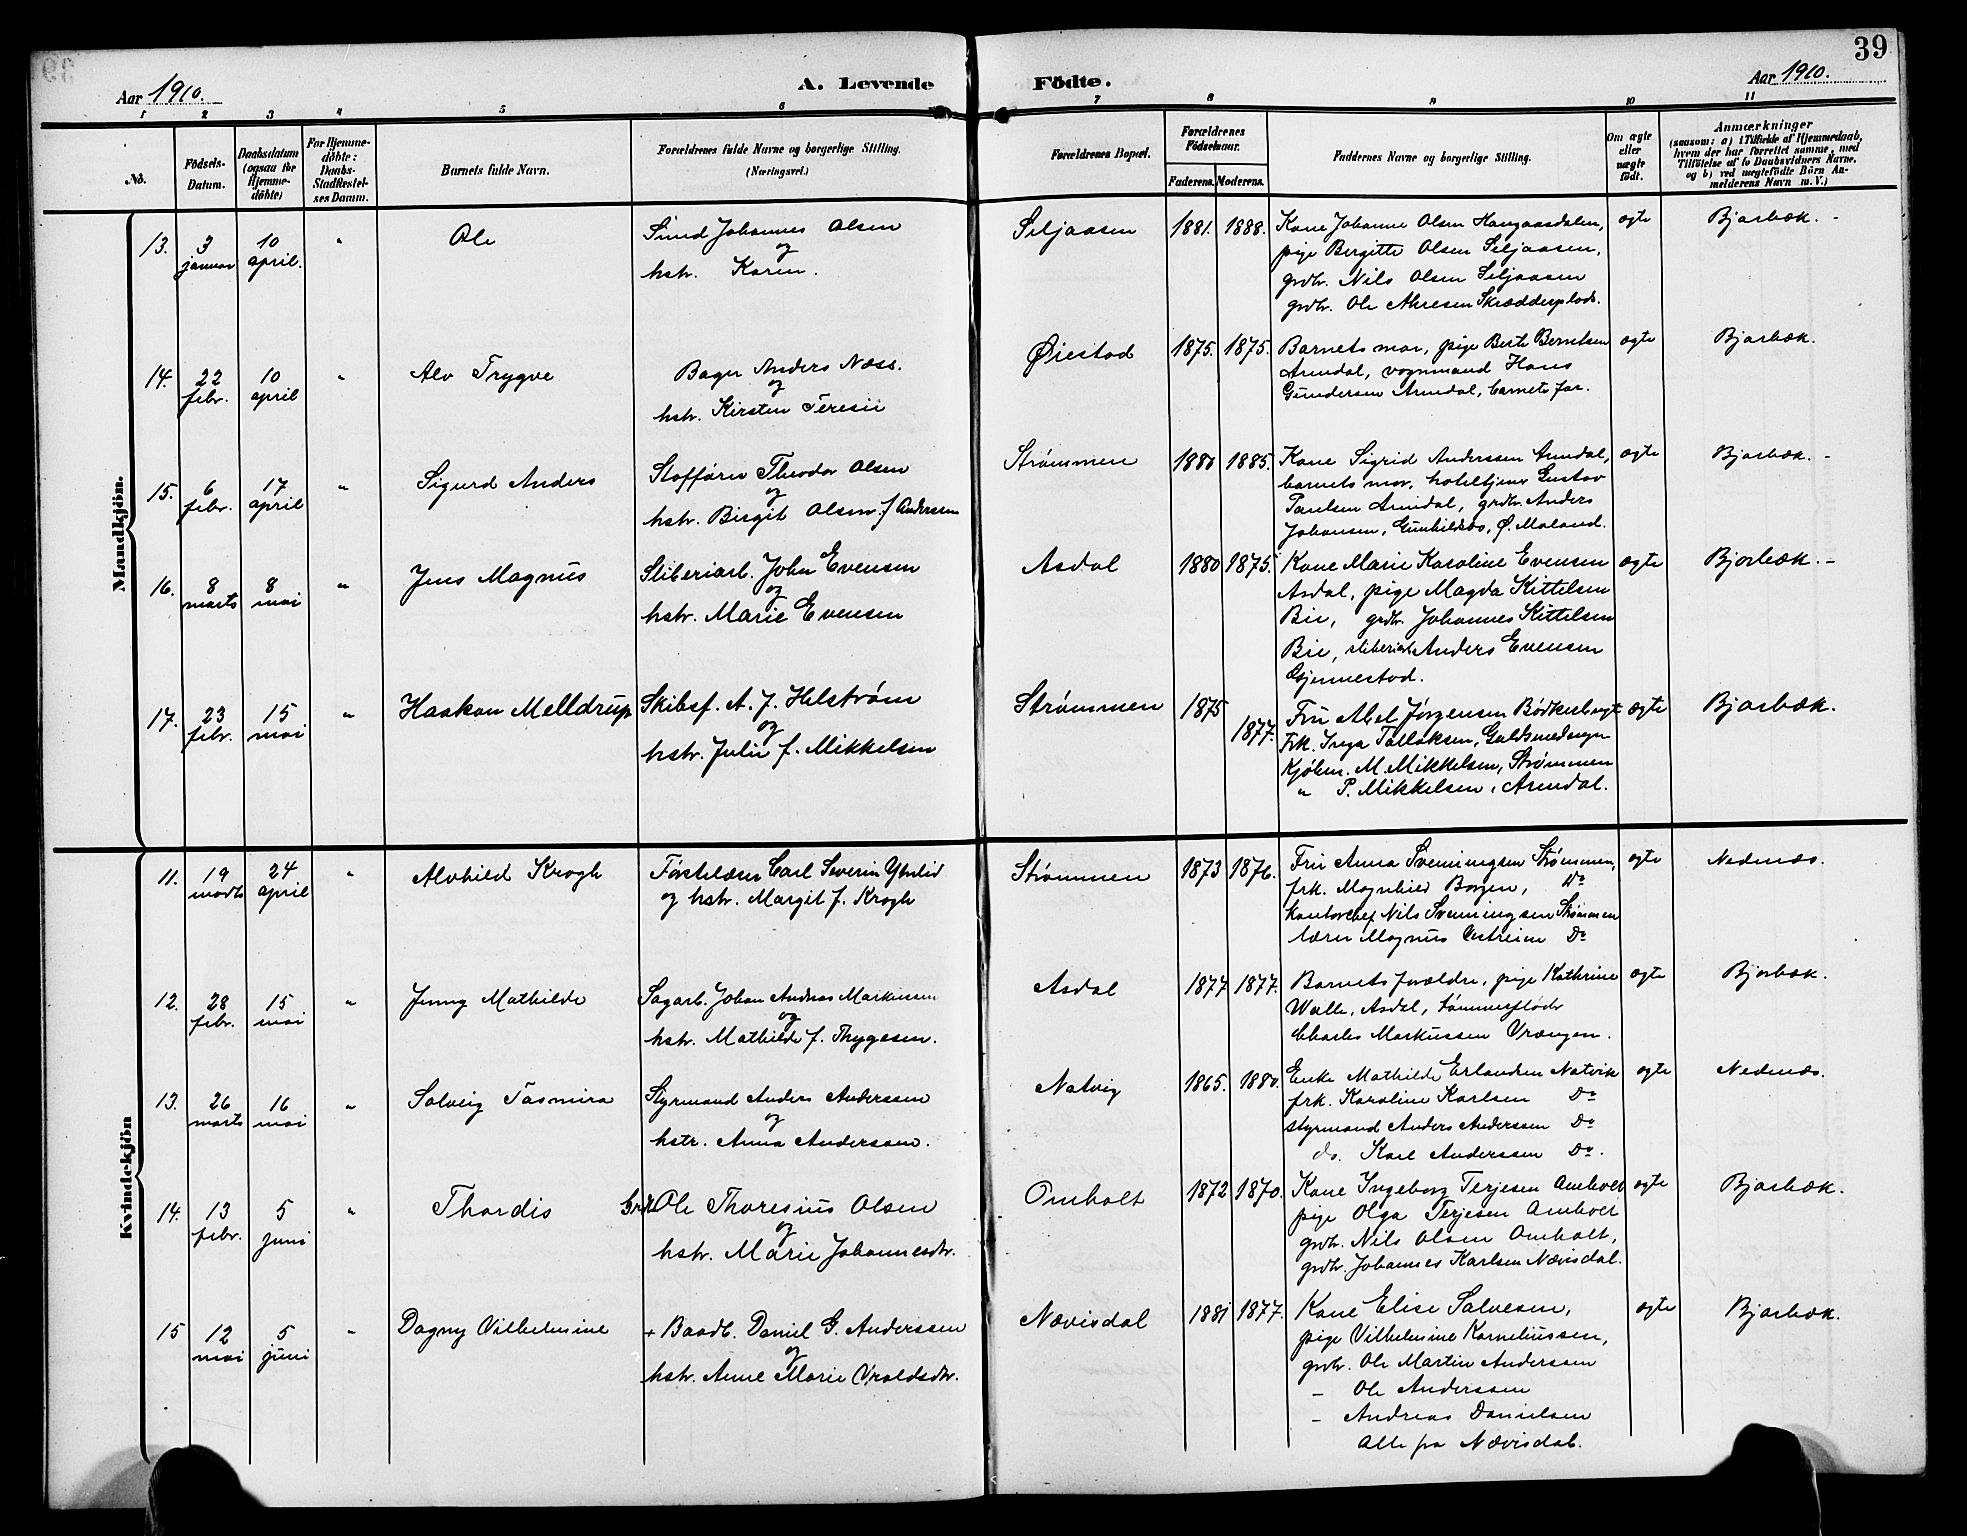 39
Aar 1910.
A. Levende
Födte.
Aar 1910.
1 2 3 4 5 6 7 8 9 10 11
No.
Födsels-
Datum.
Daabsdatum
(ogsaa for
Hjemme-
döbte)
For Hjemme-
döbte:
Daabs-
Stadfæstel-
ses Datum.
Barnets fulde Navn.
Forældrenes fulde Navne og borgerlige Stilling.
(Næringsvei.)
Forældrenes Bopæl.
Forældrenes
Födselsaar.
Faderens.
Moderens.
Faddernes Navne og borgerlige Stilling.
Om ægte
eller
uægte
födt.
Anmærkninger
(saasom: a) i Tilfælde af Hjemmedaab,
hvem der har forrettet samme, med
Tilföielse af to Daabsvidners Navne.
og b) ved uægtefödte Börn An-
melderens Navn m. V.)
Mandkjön.
13. 3 januar 10 april. " Ole
Simd Johannes Olsen
og
hstr. Karen.
Seljaasen 1881. 1888.
Kone Johanne Olsen Haugaasdalen,
pige Bergitte Olsen Seljaasen,
grdbr. Nils Olsen Seljaasen
grdbr. Ole Ahresen Skrædderplads.
ægte Bjorbæk. -
14. 22 febr. 10 april " Alv Trygve
Bager Anders Næss.
og
hstr. Kirsten Teresie
Øiestad 1875. 1875.
Barnets mor, pige Berte Berntsen
Arendal, vognmand Hans
Gundersen Arendal, barnets far.
ægte Bjorbæk.
15. 6 febr. 17 april " Sigurd Anders
Theodor Olsen
og
hstr. Birgit Olsen f Anderssen
Strømmen 1880 1885.
Kone Sigrid Anderssen Arendal,
barnets mor, hoteltjener Gustav
Paulsen Arendal, grdbr. Anders
Johansen, Gunhildsbo, Ø. Moland.
ægte Bjorbæk. -
16. 8 marts 8 mai " Jens Magnus
Sliberiarb. John Evensen
og
hstr. Marie Evensen
Asdal 1880 1875.
Kone Marie Karoline Evensen
Asdal, pige Magda Kittelsen
Bie, grdbr. Johannes Kittelsen
Bie, sliberiarb Anders Evensen
Gjennestad.
ægte Bjorbæk. -
17. 23 febr. 15 mai " Haakon Melldrup
Skibsf. A. J. Helstrøm
og
hstr. Julie f. Mikkelsen
Strømmen 1875 1877.
Fru Abel Jørgensen
Frk. Inga Tallaksen,
Kjøbm. M. Mikkelsen, Strømmen
" P. Mikkelsen, Arendal.
ægte Bjorbæk.
Kvindekjön
11. 19 marts 24 april " Alvhild Krogh
Førstelærer Carl Severin
og hstr. Margit f. Krogh
Strømmen 1873 1876.
Fru Anna Svenningsen Strømmen,
frk. Magnhild Borgen, Do
Kontorchef Nils Svenningsen Strømmen
lærer Magnus Do
ægte Nedenæs.
12. 28 febr. 15 mai " Jenny Mathilde
Sagarb. Johan Andreas Markussen
og
hstr. Mathilde f. Thygesen.
Asdal 1877 1877.
Barnets forældre, pige Kathrine
Walle, Asdal, tømmerfløder
Charles Markussen Vrængen.
ægte Bjorbæk.
13. 26 marts 16 mai " Solveig Tasmira
Styrmand Anders Anderssen
og
hstr. Anna Anderssen.
Natvig 1865. 1880.
Enke Mathilde Erlandsen Natvik
frk. Karoline Karlsen Do
styrmand Anders Anderssen Do
do. Karl Anderssen Do.
ægte Nedenæs.
14. 13 febr. 5 juni " Thordis
Grdb. Ole Thoresius Olsen
og
hstr. Marie Johannesdtr.
Omholt 1872 1870.
Kone Ingeborg Terjesen Omholt
pige Olga Terjesen Omholt
grdbr. Nils Olsen Omholt,
grdbr. Johannes Karlsen Nævisdal.
ægte Bjorbæk.
15 12 mai 5 juni " Dagny Vilhelmine
+ Baadb. Daniel G. Anderssen
og
hstr. Anne Marie Vraldsdtr.
Nævisdal 1881 1877.
Kone Elise Salvesen,
pige Vilhelmine Korneliussen,
grdbr. Ole Martin Anderssen
- Ole Anderssen
- Andreas Danielsen
Alle fra Nævisdal.
ægte Bjorbæk.